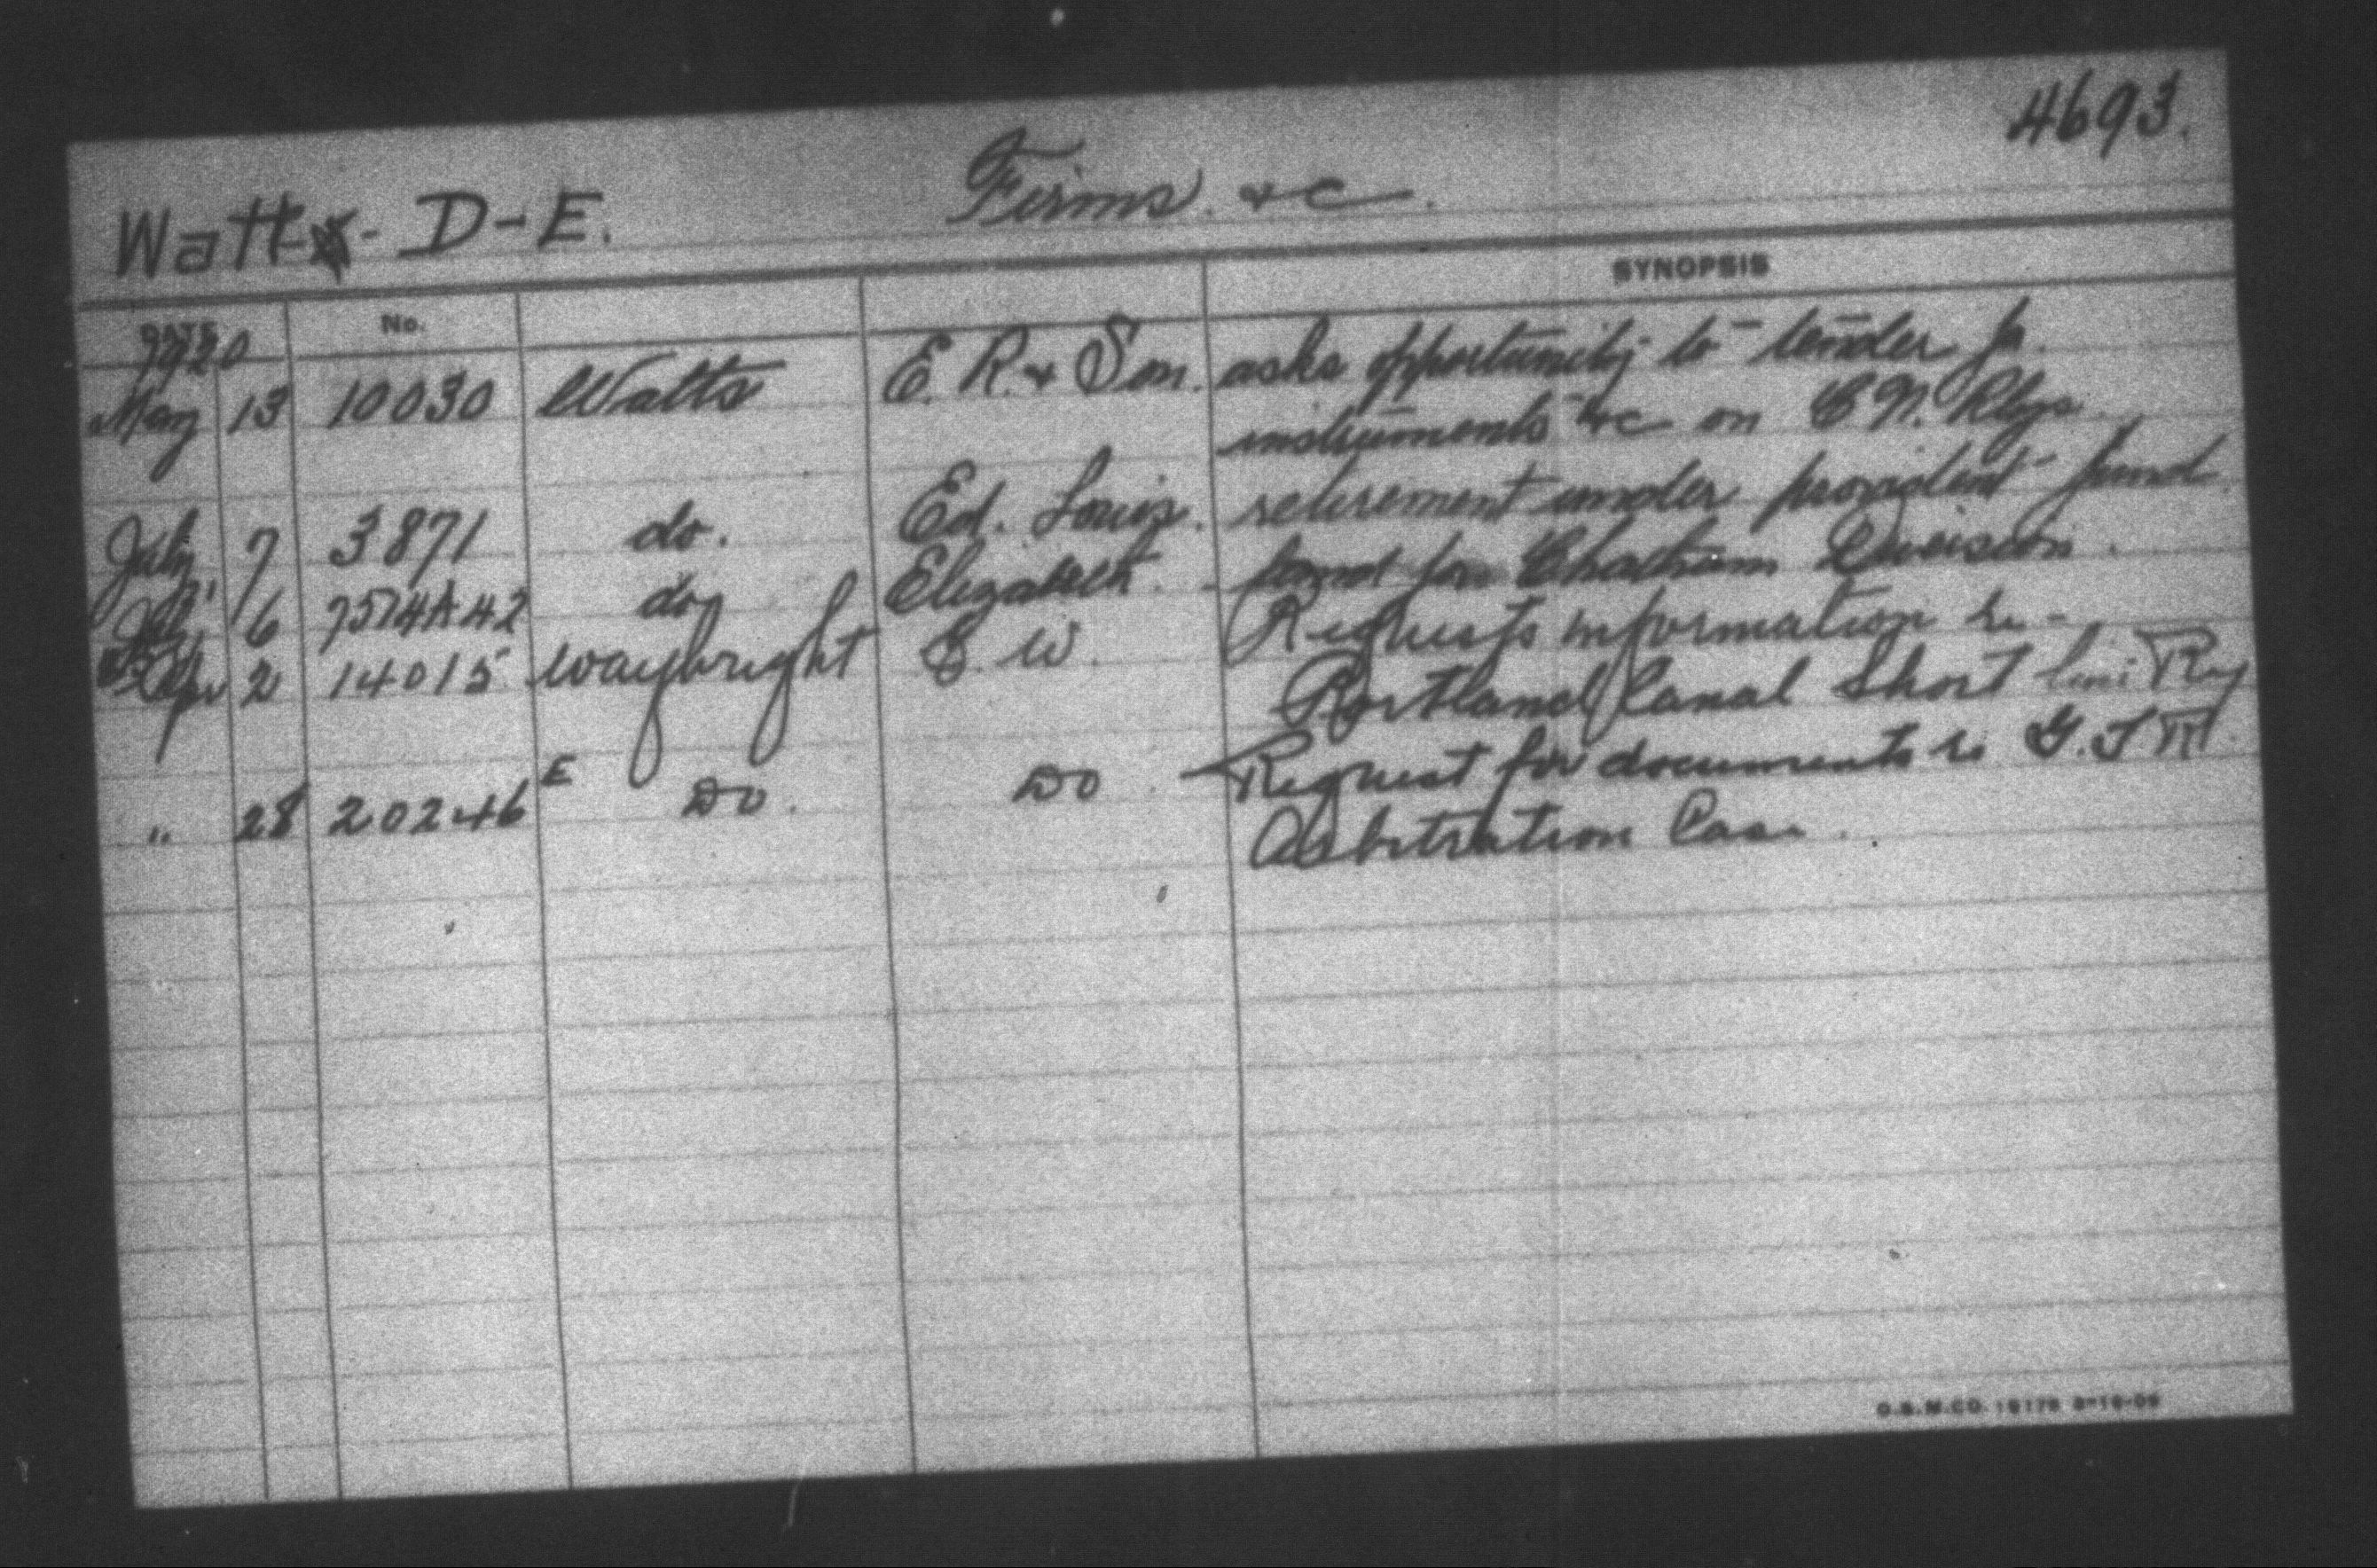 4693.
Watt - D-E. Firms. &c.
SYNOPSIS
DATE No.
1920
May 13 10030 Watts E. R. & Son. asks opportunity to tender for
instruments &c on C.N. Rlys.
July 7 3871 do. Ed. Louis. retirement under provident fund.
6 7574A42 do Elizabeth. land for Chatham Division.
Apr 2 14015 Waybright E. W. Requests information re -
Portland Canal Short line Ry
" 28 20246 E Do. Do. Request for documents re G.T.R.
Arbitration Case.
O.S.M.CO. 18178 3-16-09